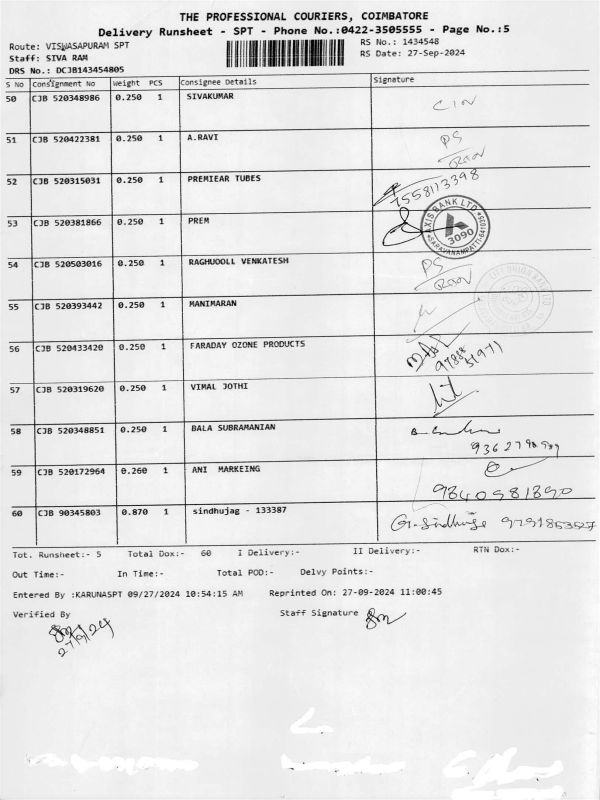 THE PROFESSIONAL COURIERS, COIMBATORE
Delivery Runsheet - SPT - Phone No.:0422-3505555 - Page No.:5
Route: VISWASAPURAM SPT
RS No.: 1434548
Staff: SIVA RAM
RS Date: 27-Sep-2024
DRS No.: DCJB143454805
S No Consignment No Weight PCS Consignee Details Signature
50 CJB 520348986 0.250 1 SIVAKUMAR
51 CJB 520422381 0.250 1 A.RAVI PS
52 CJB 520315031 0.250 1 PREMIEAR TUBES 7558123398
53 CJB 520381866 0.250 1 PREM AXIS BANK LTD 3090
54 CJB 520503016 0.250 1 RAGHUOOLL VENKATESH PS
55 CJB 520393442 0.250 1 MANIMARAN
56 CJB 520433420 0.250 1 FARADAY OZONE PRODUCTS 97888 51971
57 CJB 520319620 0.250 1 VIMAL JOTHI
58 CJB 520348851 0.250 1 BALA SUBRAMANIAN
59 CJB 520172964 0.260 1 ANI MARKEING 9840981890
60 CJB 90345803 0.870 1 sindhujag - 133387 G. Sindhuja 9791853527
Tot. Runsheet:- 5 Total Dox:- 60 I Delivery:- II Delivery:- RTN Dox:-
Out Time:- In Time:- Total POD:- Delvy Points:-
Entered By :KARUNASPT 09/27/2024 10:54:15 AM Reprinted On: 27-09-2024 11:00:45
Verified By Staff Signature
27/9/24